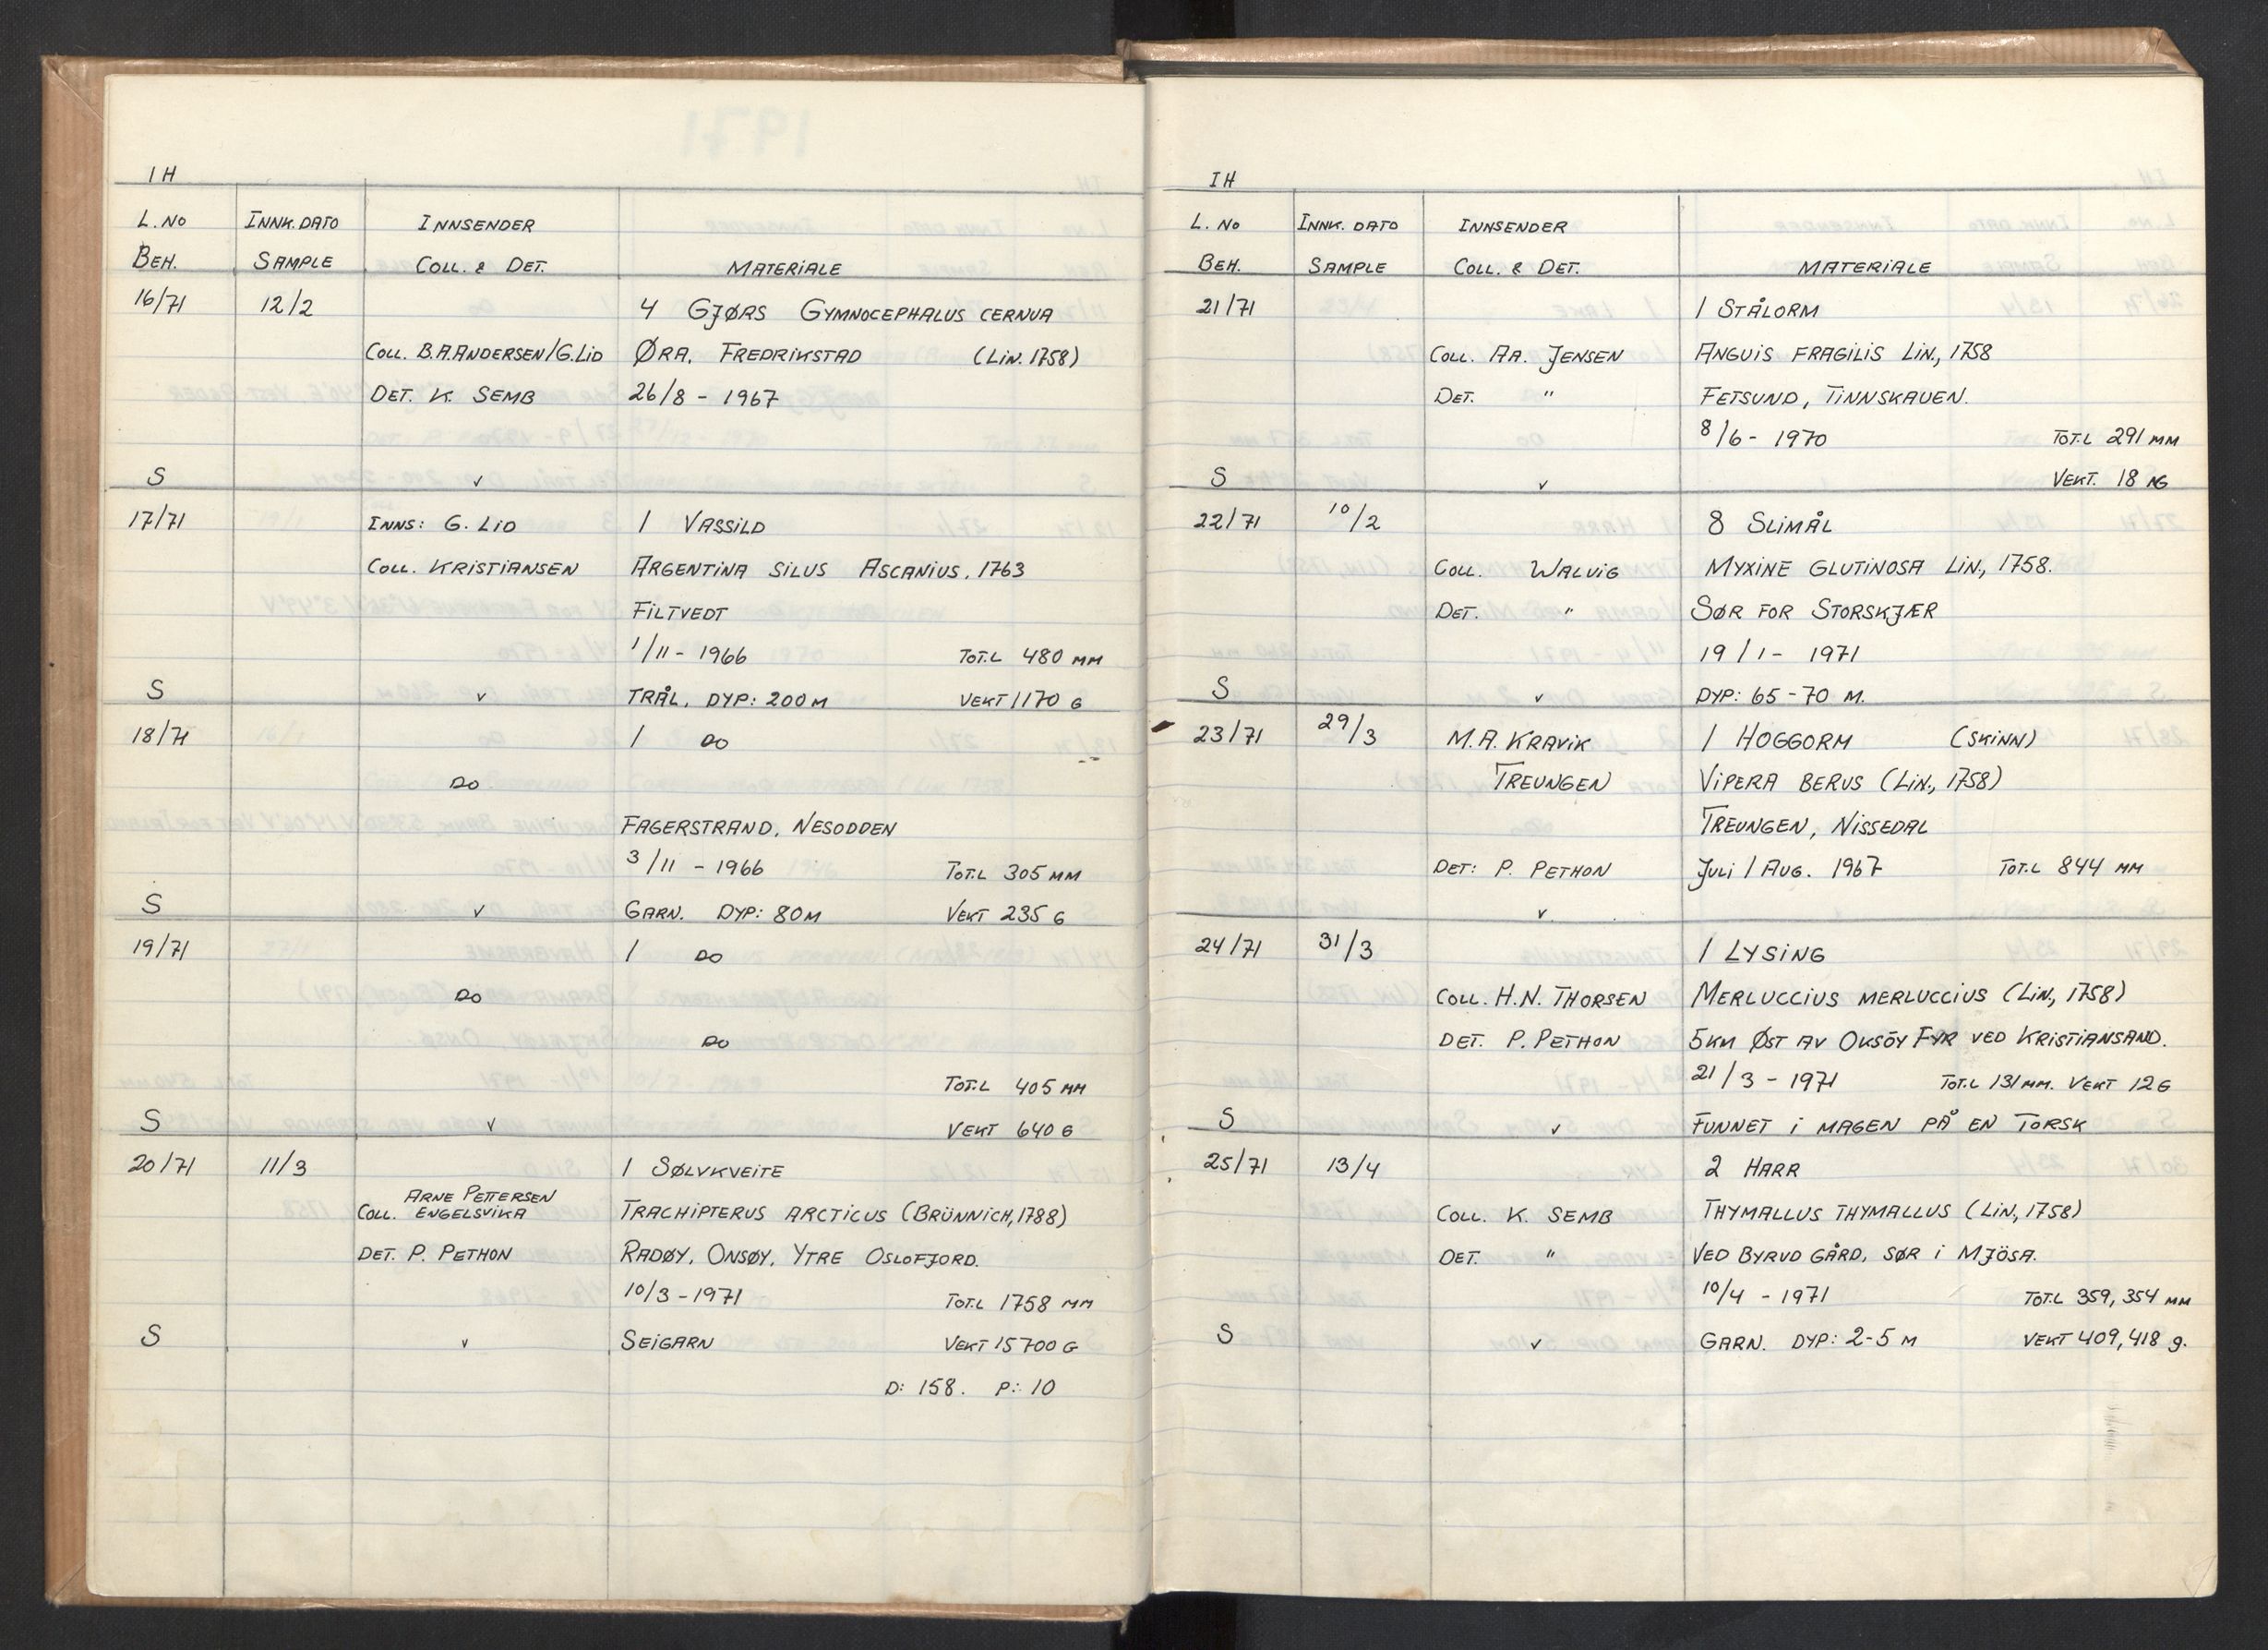 IH
L. No INNK. DATO INNSENDER
BEH. SAMPLE COLL. & DET. MATERIALE
16/71 12/2 4 GJØRS GYMNOCEPHALUS CERNUA
COLL. B.A.ANDERSEN/G.LID ØRA, FREDRIKSTAD (LIN. 1758)
DET. K. SEMB 26/8 - 1967
S v
17/71 INNS: G. LID 1 VASSILD
COLL. KRISTIANSEN ARGENTINA SILUS ASCANIUS, 1763
FILTVEDT
1/11 - 1966 TOT.L 480 MM
S v TRÅL, DYP: 200 M VEKT 1170 G
18/71 1 DO
DO
FAGERSTRAND, NESODDEN
3/11 - 1966 TOT.L 305 MM
S v GARN. DYP: 80 M VEKT 235 G
19/71 1 DO
DO
DO
TOT.L 405 MM
S v VEKT 640 G
20/71 11/3 1 SØLVKVEITE
ARNE PETTERSEN
COLL. ENGELSVIKA TRACHIPTERUS ARCTICUS (BRÜNNICH, 1788)
DET. P. PETHON RADØY, ONSØY, YTRE OSLOFJORD.
10/3 - 1971 TOT.L 1758 MM
S v SEIGARN VEKT 15700 G
D: 158. P: 10
IH
L. No INNK. DATO INNSENDER
BEH. SAMPLE COLL. & DET. MATERIALE
21/71 1 STÅLORM
COLL. AA. JENSEN ANGUIS FRAGILIS LIN., 1758
DET. " FETSUND, TINNSKAUEN.
8/6 - 1970 TOT.L 291 MM
S v VEKT. 18 G
22/71 10/2 8 SLIMÅL
COLL. WALVIG MYXINE GLUTINOSA LIN., 1758.
DET. " SØR FOR STORSKJÆR
19/1 - 1971
S v DYP: 65-70 M.
23/71 29/3 M.A. KRAVIK 1 HOGGORM (SKINN)
TREUNGEN VIPERA BERUS (LIN., 1758)
TREUNGEN, NISSEDAL
DET: P. PETHON JULI / AUG. 1967 TOT.L 844 MM
v
24/71 31/3 1 LYSING
COLL. H.N. THORSEN MERLUCCIUS MERLUCCIUS (LIN., 1758)
DET. P. PETHON 5 KM ØST AV OKSÖY FYR VED KRISTIANSAND.
21/3 - 1971 TOT.L 131 MM. VEKT 12 G
S v FUNNET I MAGEN PÅ EN TORSK
25/71 13/4 2 HARR
COLL. K. SEMB THYMALLUS THYMALLUS (LIN, 1758)
DET. " VED BYRUD GÅRD, SØR I MJÖSA.
10/4 - 1971 TOT.L 359, 354 MM
S v GARN. DYP: 2-5 M VEKT 409, 418 g.